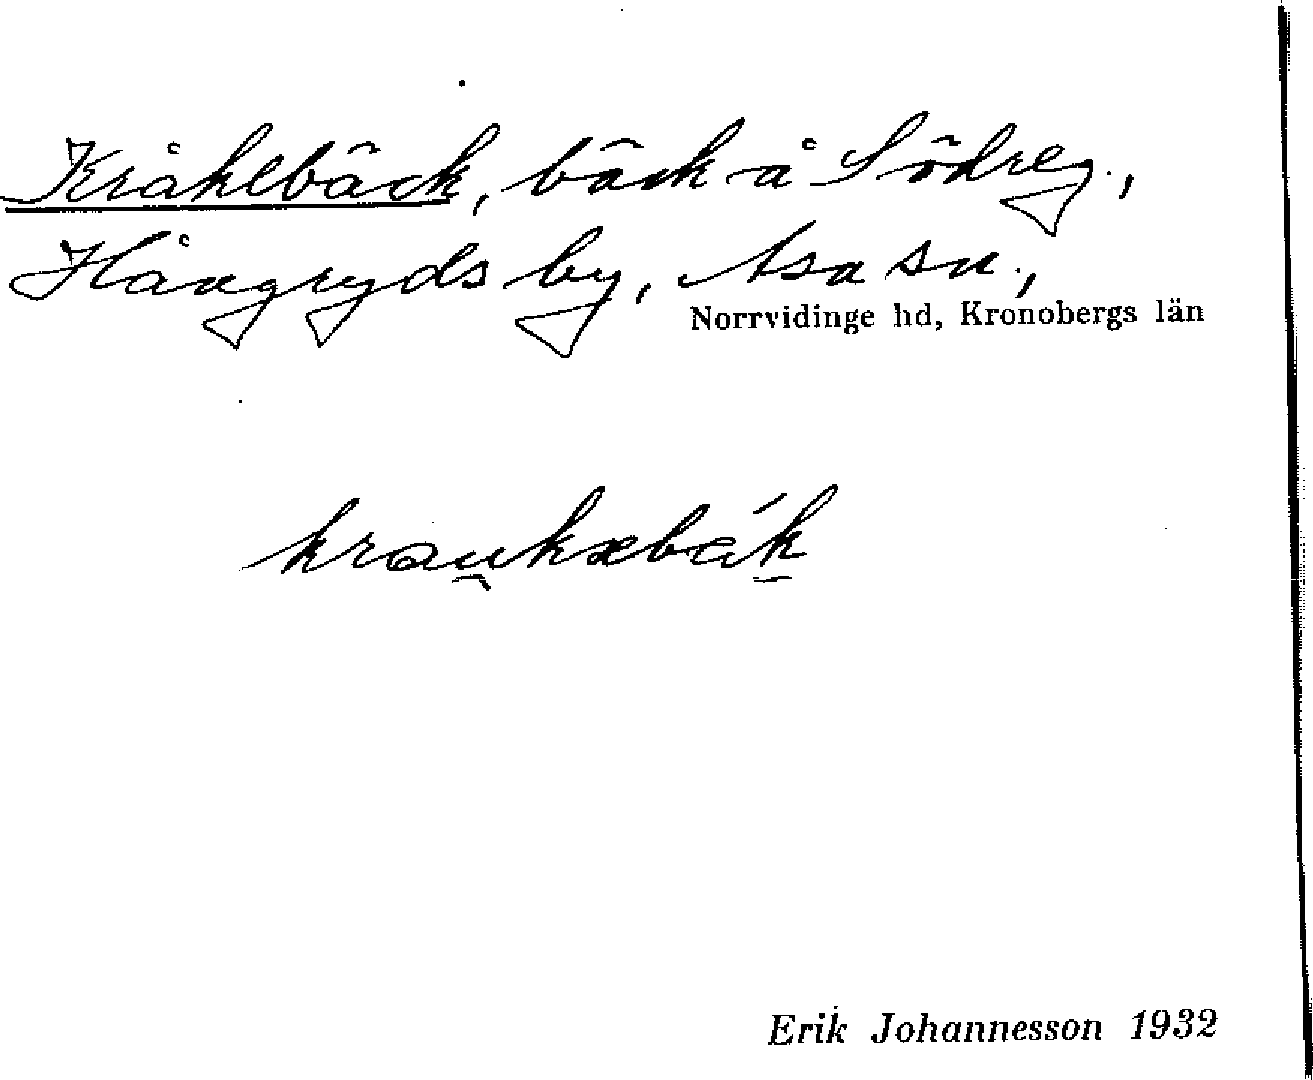 Kråkebäck, bäck å Södreg.,
Hångryds by, Asa sn.,
Norrvidinge hd, Kronobergs län
kraukæbǽk
Erik Johannesson 1932